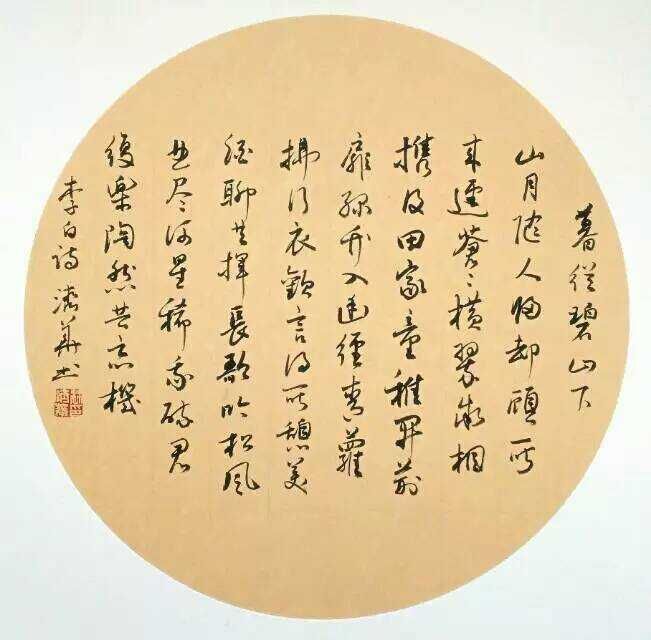 暮從碧山下
山月随人歸却顧所
来逕蒼々橫翠微相
携及田家童稚开荊
扉绿竹入幽徑青蘿
拂行衣歡言得所憩美
酒聊共揮長歌吟松風
曲尽河星稀我醉君
復樂陶然共忘機
李白诗 華书